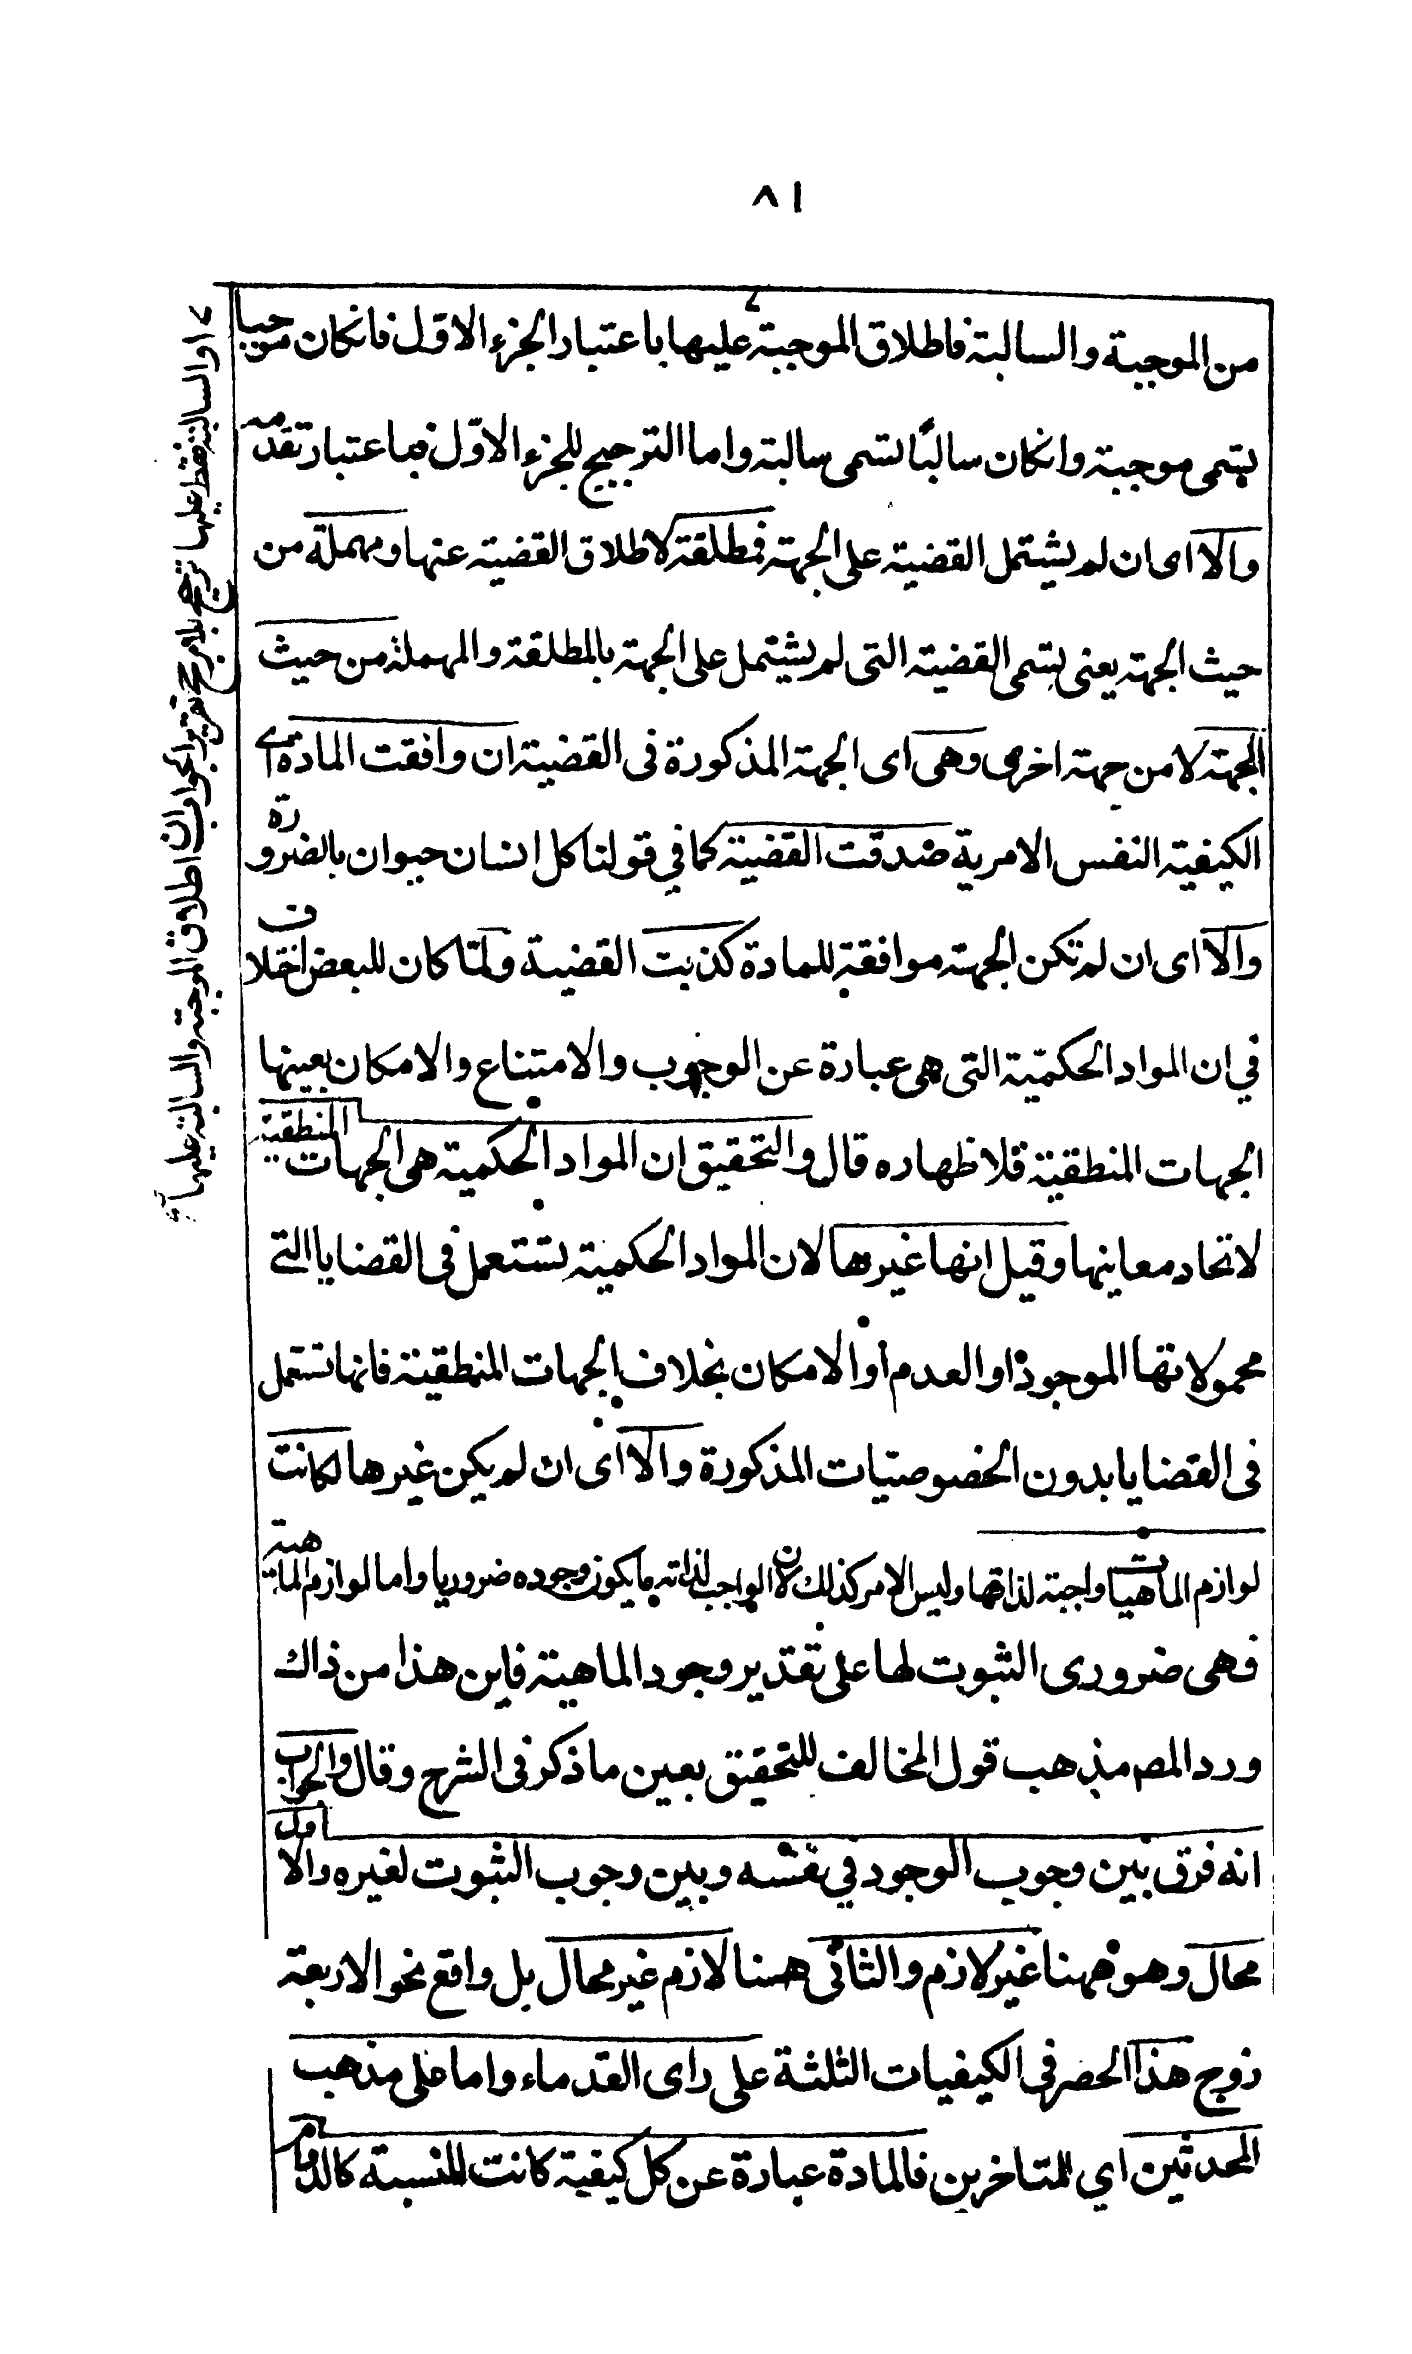 ٨١
من الموجبة والسالبة فاطلاق الموجبة عليها باعتبار الجزء الاول فانكان موجبا
يسمى موجبة وانكان سالبًا تسمى سالبة واما الترجيح للجزء الاوّل فباعتبار تقدمه
والا اى ان لم يشتمل القضية على الجهة فمطلقة لاطلاق القضية عنها ومهملة من
حيث الجهة يعنى يسمى القضية التى لم يشتمل على الجهة بالمطلقة والمهملة من حيث
الجهة لا من جهة اخرى وهى اى الجهة المذكورة فى القضية ان وافقت المادة اى
الكيفية النفس الامرية صدقت القضية كما في قولنا كل انسان حيوان بالضرورة
والا اى ان لم تكن الجهة موافقة للمادة كذبت القضية ولما كان للبعض اختلاف
في ان المواد الحكميّة التى هى عبارة عن الوجوب والامتناع والامكان بعينها
الجهات المنطقية فلاظهاره قال والتحقيق ان المواد الحكمية هى الجهات المنطقية
لاتحاد معاينها وقيل انها غيرها لان المواد الحكمية تستعمل فى القضايا التى
محمولاتها الموجود او العدم او الامكان بخلاف الجهات المنطقية فانها تستعمل
فى القضايا بدون الخصوصيّات المذكورة والا اى ان لم يكن غيرها لكانت
لوازم الماهيات واجبة لذاتها وليس الامر كذلك لان الواجب لذاته ما يكون وجوده ضروريا واما لوازم الماهية
فهى ضرورى الثبوت لها على تقدير وجود الماهية فاين هذا من ذاك
ورد المص مذهب قول المخالف للتحقيق بعين ما ذكر فى الشرح وقال والجواب
انه فرق بين وجوب الوجود في نفسه وبين وجوب الثبوت لغيره والاول
محال وهو ههنا غير لازم والثانى ههنا لازم غير محال بل واقع نحو الاربعة
زوج هذا الحصر فى الكيفيات الثلثة على راى القدماء واما على مذهب
المحدثين اي المتاخرين فالمادة عبارة عن كل كيفية كانت للنسبة كالدوام
او السالبة فقط عليها ترجيح بلا مرجح تقرير الجواب ان اطلاق الموجبة والسالبة عليها